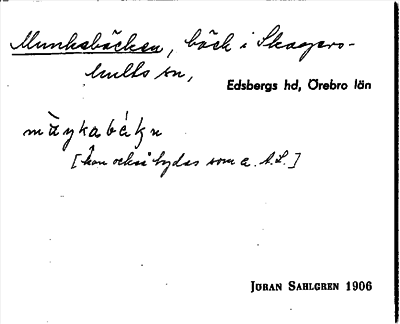 Munkabäcken, bäck i Skagers-
hults sn,
Edsbergs hd, Örebro län
mùŋkabákn
[kan också tydas som a. J.S.]
JÖRAN SAHLGREN 1906